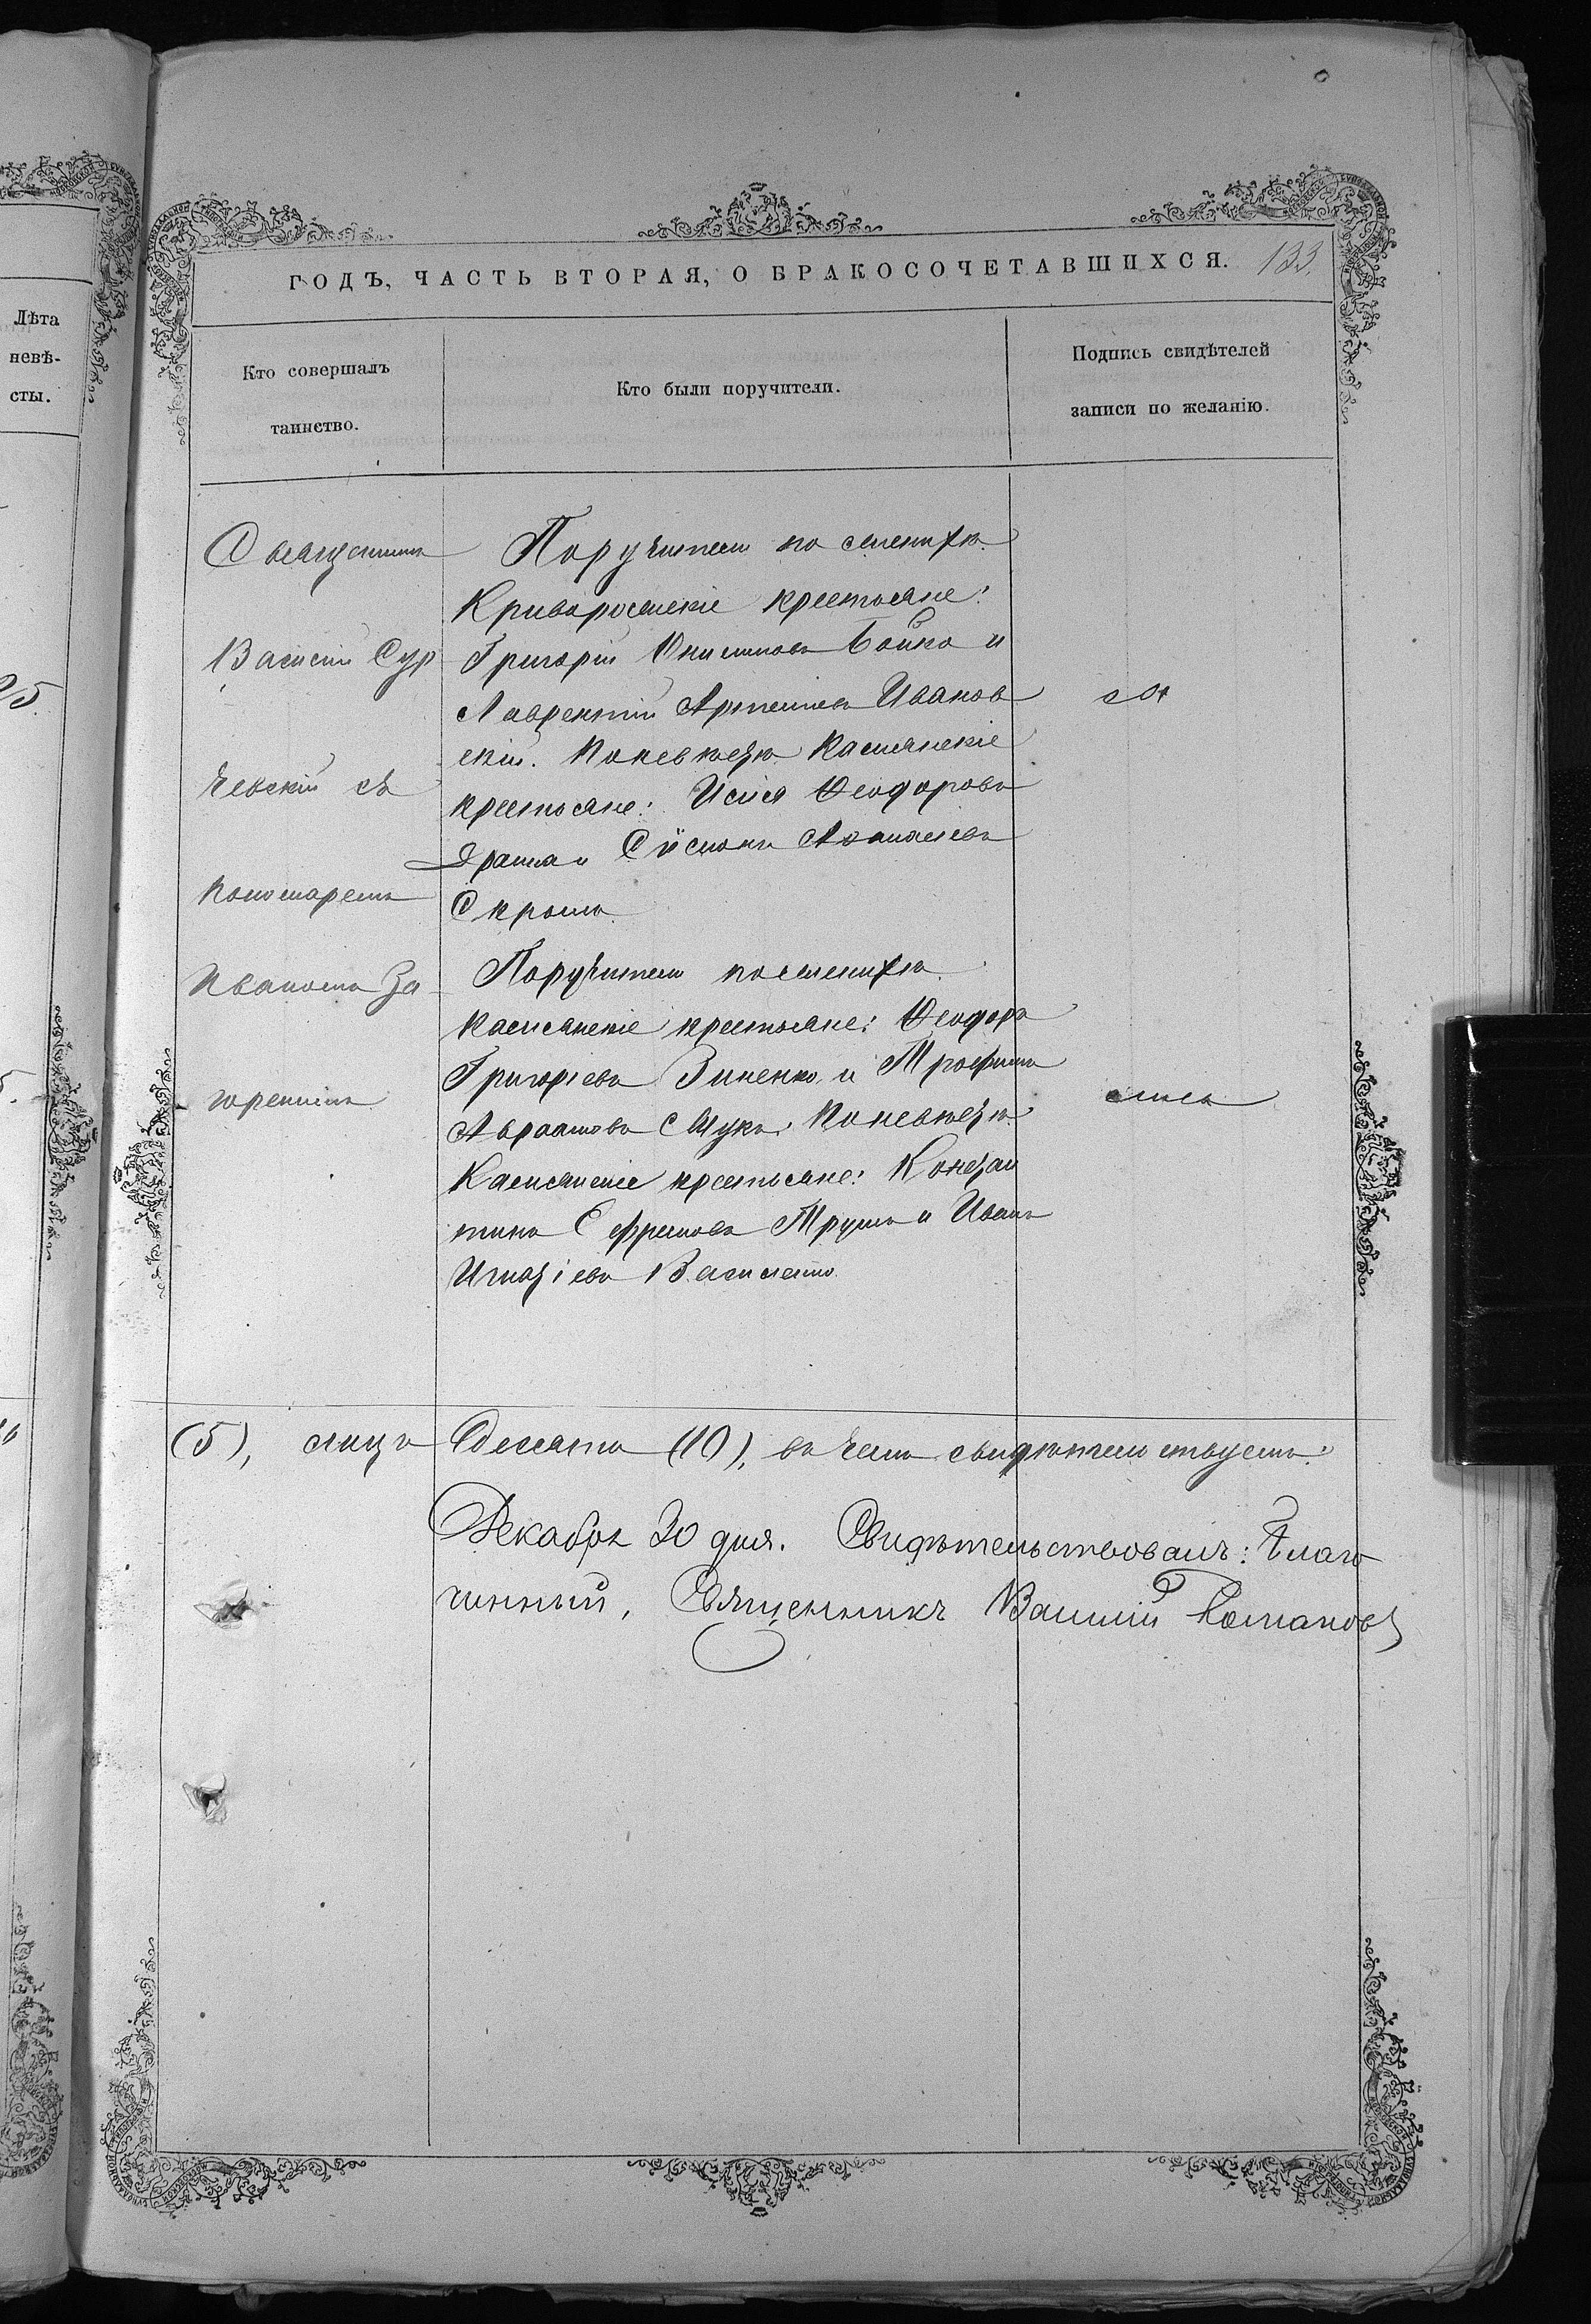 Лѣта
невѣ-
сты.
25.
ГОДЪ, ЧАСТЬ ВТОРАЯ, О БРАКОСОЧЕТАВШИХСЯ. 133.
Кто совершалъ
таинство.
Кто были поручители.
Подпись свидѣтелей
записи по желанію.
Священникъ
Василій Сур
чевскій съ
пономаремъ
Иваномъ За
горскимъ
Поручители по женихѣ
Криворожскіе крестьяне:
Григорій Онисимовъ Бойко и
Лаврентій Артемьевъ Иванов
скій. По невѣстѣ
крестьяне: Исаія Ѳеодоровъ
и Сѵсой Аѳанасіевъ
Поручители по женихѣ
крестьяне: Ѳеодоръ
Григоріевъ Зиненко и Трофимъ
Авраамовъ По невѣстѣ
крестьяне: Констан
тинъ Ефремовъ Трушъ и Иванъ
Игнатіевъ Василенко
(5), лицъ десять (10), въ чемъ свидѣтельствуемъ:
Декабря 30 дня. Свидѣтельствовалъ: Благо
чинный, Священникъ Василій Романовъ